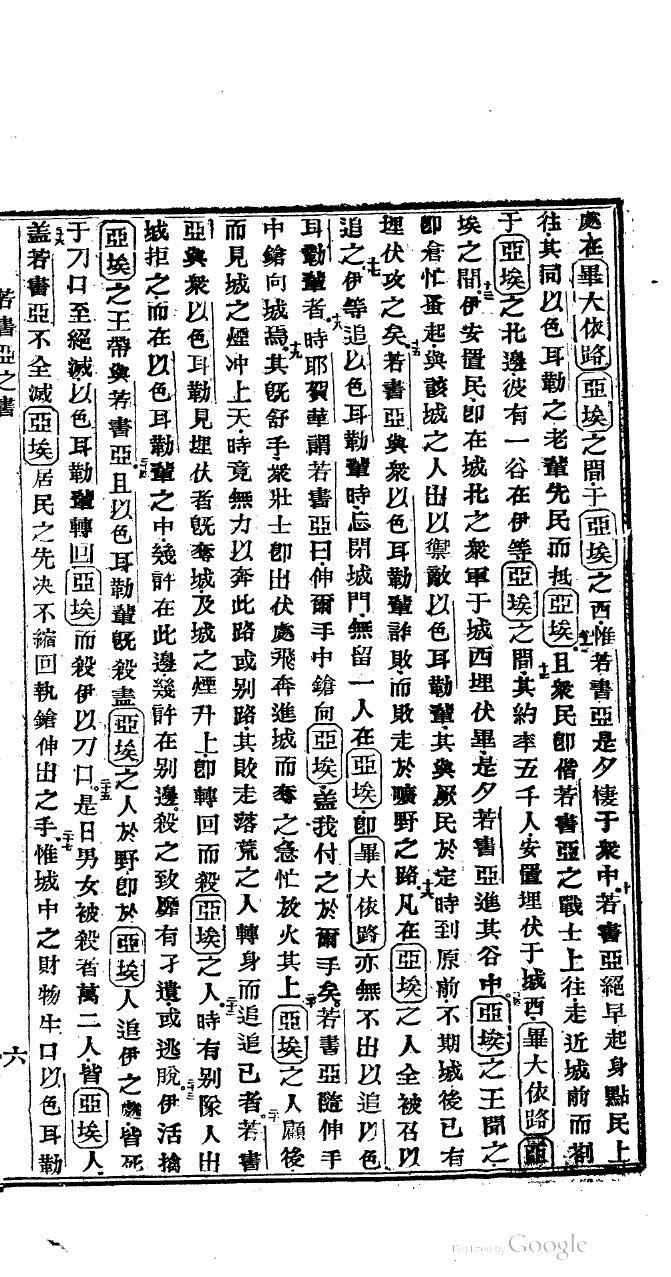 處在畢大依路亞埃之間于亞埃之西惟若書亞是夕棲于衆中十若書亞絕早起身點民上
往其同以色耳勒之老輩先民而抵亞埃十一且衆民卽偕若書亞之戰士上往走近城前而劄
于亞埃之北邊彼有一谷在伊等亞埃之間十二其約率五千人安置埋伏于城西畢大依路亞
埃之間十三伊安置民卽在城北之衆軍于城西埋伏畢是夕若書亞進其谷中十四亞埃之王聞之
卽倉忙蚤起與該城之人出以禦敵以色耳勒輩其與厥民於定時到原前不期城後已有
埋伏攻之矣十五若書亞與衆以色耳勒輩詐敗而敗走於曠野之路十六凡在亞埃之人全被召以
追之十七伊等追以色耳勒輩時忘閉城門無留一人在亞埃卽畢大依路亦無不出以追以色
耳勒輩者十八時耶賀華謂若書亞曰伸爾手中鎗向亞埃蓋我付之於爾手矣若書亞隨伸手
中鎗向城焉十九其旣舒手衆壯士卽出伏處飛奔進城而奪之急忙放火其上二十亞埃之人顧後
而見城之煙冲上天時竟無力以奔此路或别路其敗走落荒之人轉身而追追已者二十一若書
亞與衆以色耳勒見埋伏者旣奪城及城之煙升上卽轉回而殺亞埃之人二十二時有别隊人出
城拒之而在以色耳勒輩之中幾許在此邊幾許在别邊殺之致靡有孑遺或逃脫二十三伊活擒
亞埃之王帶與若書亞二十四且以色耳勒輩旣殺盡亞埃之人於野卽於亞埃人追伊之處皆死
于刀口至絕滅以色耳勒輩轉回亞埃而殺伊以刀口二十五是日男女被殺者萬二人皆亞埃人
二十六蓋若書亞不全滅亞埃居民之先决不縮回執鎗伸出之手二十七惟城中之財物牛口以色耳勒
若書亞之書
六
Digitized by Google